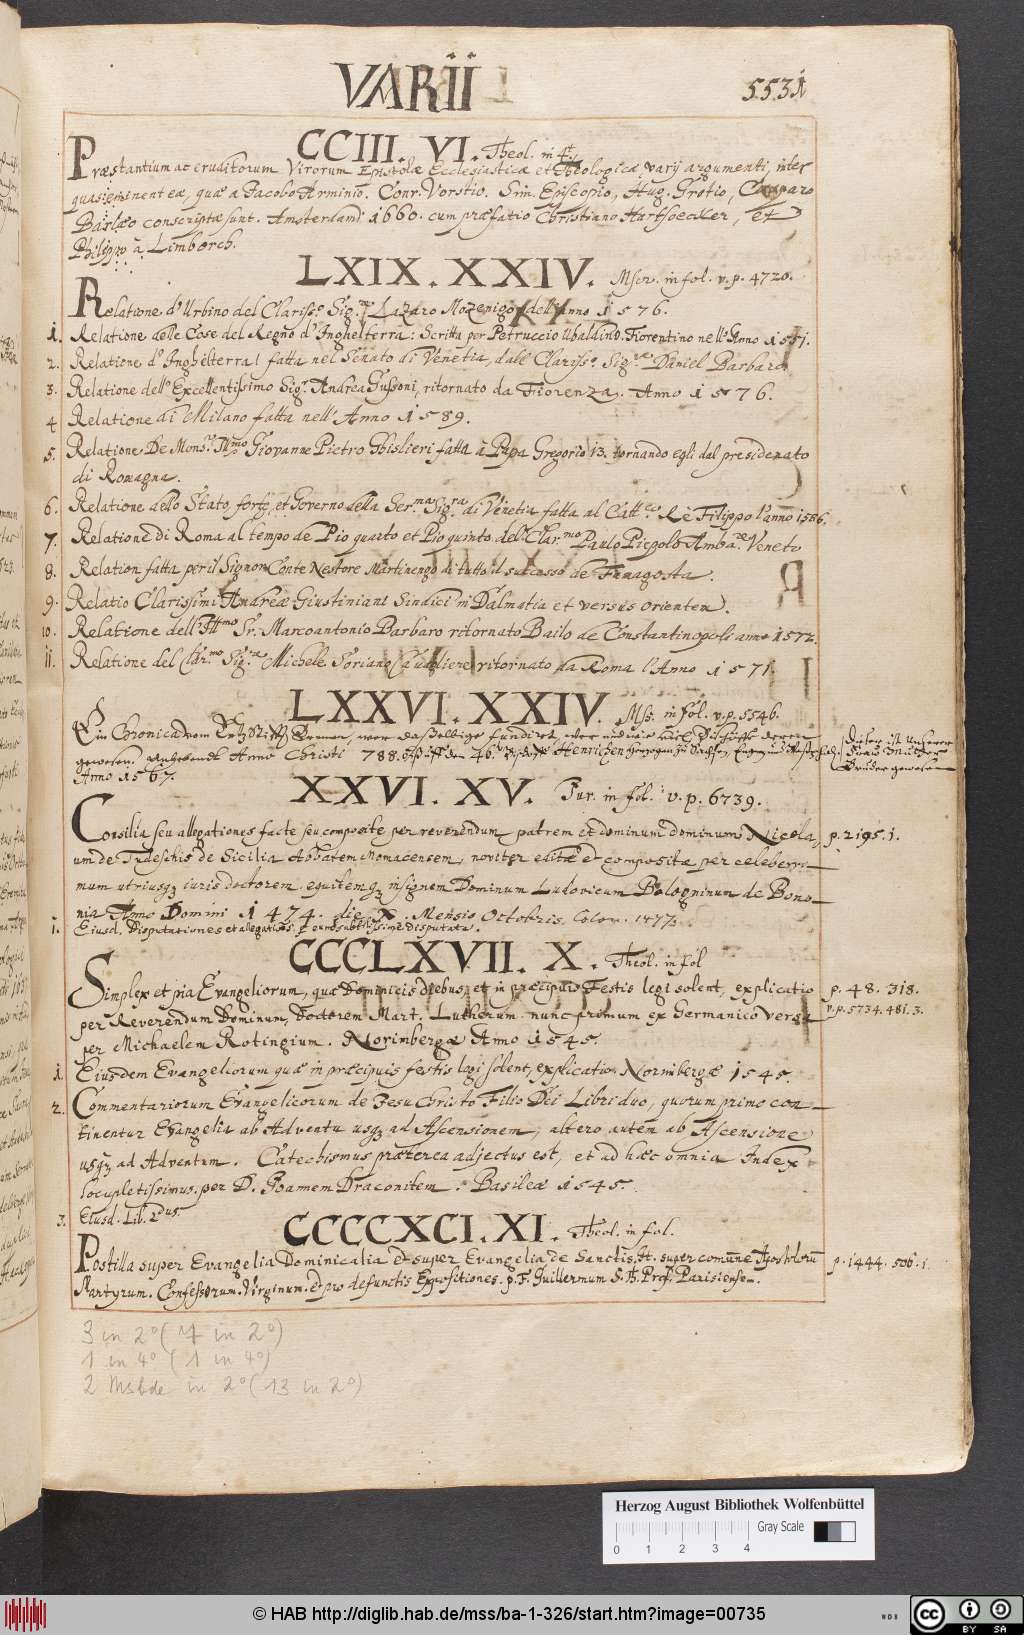 VARII
5531
CCIII. VI. Theol. in 4t.
Præstantium ac eruditorum Virorum Epistolæ Ecclesiasticæ et Theologicæ varij argumenti, inter
quas eminent eæ, quæ a Jacobo Arminio. Conr. Vorstio. Sim. Episcopio, Hug. Grotio, Casparo
Barlæo conscriptæ sunt. Amsterdami 1660. cum præfatio Christiano Hartsoecker, et
Philippo à Limborch.
LXIX. XXIV. Mscr. in fol. v. p. 4720.
Relatione d'Urbino del Clariss.o Sig.re Lazaro Mozenigo dell'anno 1576.
1. Relatione delle Cose del Regno d'Inghelterra: Scritta per Petruccio Ubaldino Fiorentino nell'Anno 1551.
2. Relatione d'Inghelterra fatta nel Senato di Venetia, dall' Clariss.o Sig.re Daniel Barbaro
3. Relatione dell' Excellentissimo Sig.r Andrea Gussoni, ritornato da Fiorenza. Anno 1576.
4 Relatione di Milano fatta nell'Anno 1589.
5. Relatione De Mons.r Ill.mo Giovanne Pietro Ghislieri fatta à Papa Gregorio 13. tornando egli dal presidentato
di Romagna.
6. Relatione dello Stato, forze, et Governo della Ser.ma Sig.ra di Venetia fatta al Catt.co Rè Filippo l'anno 1586.
7. Relatione di Roma al tempo de Pio quarto et Pio quinto del Clar.mo Paulo Piepolo Amba.re Veneto
8. Relation fatta per il Signor Conte Nestore Martinengo di tutto il successo de Famagosta.
9. Relatio Clarissimi Andreæ Giustiniani Sindici in Dalmatia et versus orientem.
10. Relatione dell' Ill.mo Sr. Marcoantonio Barbaro ritornato Bailo de Constantinopoli anno 1572.
11. Relatione del Clar.mo Sig.re Michele Soriano Cavaliere ritornato da Roma l'Anno 1571.
LXXVI. XXIV. Mss. in fol. v. p. 5546.
Ein Chronica vom Ertzstifft Bremen, wer dasselbige fundiret, wer und wie viel Bischöffe derer
gewesen. Anhebendt Anno Christi 788. biß uff den 46. Bischoff Henrichen Hertzogen zu Sachsen, Engern und Westphalen
Anno 1567.
dieser ist unserer
Fraw Mutter
Bruder gewesen
XXVI. XV. Jur. in fol. v. p. 6739.
Consilia seu allegationes facte seu composite per reverendum patrem et dominum dominum Nicola_ p. 2195. 1.
um de Tudeschis de Sicilia Abbatem Monacensem, noviter editæ et compositæ per celeberri_
mum utriusq; iuris doctorem equitemq; insignem Dominum Ludovicum Bologninum de Bono_
nia Anno Domini 1474. die X. Mensis Octobris Colon. 1477.
1. Eiusd. Disputationes et allegationes p eund. subtilissime disputata.
CCCLXVII. X. Theol. in fol
Simplex et pia Evangeliorum, quæ Dominicis diebus, et in præcipuis Festis legi solent, explicatio p. 48. 318.
per Reverendum Dominum, Doctorem Mart. Lutherum nunc primum ex Germanico versa v. p. 5734. 481. 3.
per Michaelem Rotingium. Norimbergæ Anno 1545.
1 Eiusdem Evangeliorum quæ in præcipuis festis legi solent, explication Norimbergæ 1545.
2. Commentariorum Evangelicorum de Jesu Christo Filio Dei Libri duo, quorum primo con_
tinentur Evangelia ab Adventu usq; ad Ascensionem, altero autem ab Ascensione
usq; ad Adventum. Catechismus præterea adjectus est, et ad hæc omnia Index
locupletissimus. per D. Joannem Draconitem. Basileæ 1545.
3. Eiusd. Lib. 2dus.
CCCCXCI. XI. Theol. in fol.
Postilla super Evangelia Dominicalia et super Evangelia de Sanctis, It. super comune Apostolorum p. 1444. 506. 1.
Martyrum. Confessorum. Virginum. et pro defunctis Expositiones. p. F. Guillermum S. Th. Prof. Parisiensem.
3 in 2° (7 in 2°)
1 in 4° (1 in 4°)
2 Msbde in 2° (13 in 2°)
Herzog August Bibliothek Wolfenbüttel
Gray Scale
0 1 2 3 4
© HAB http://diglib.hab.de/mss/ba-1-326/start.htm?image=00735
WDB
cc BY SA